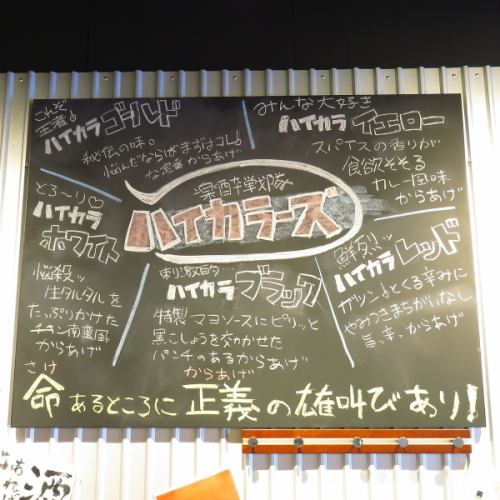 これぞ
王者！
ハイカラゴールド
秘伝の味。
悩んだならばまずはコレ！
な定番からあげ
みんな大好き
ハイカライエロー
スパイスの香りが
食欲そそる
カレー風味
からあげ
とろ～り♡
ハイカラ
ホワイト
悩殺ッ
生タルタルを
たっぷりかけた
チキン南蛮風
からあげ
戦隊
ハイカラーズ
刺激的…
ハイカラブラック
特製マヨソースにピリッと
黒こしょうを交かせた
パンチのあるからあげ
からあげ
鮮烈ッ
ハイカラレッド
ガツン♪とくる辛みに
やみつきまちがいなし
旨、辛、からあげ
さけ
命あるところに正義の雄叫びあり！
酒
あれば